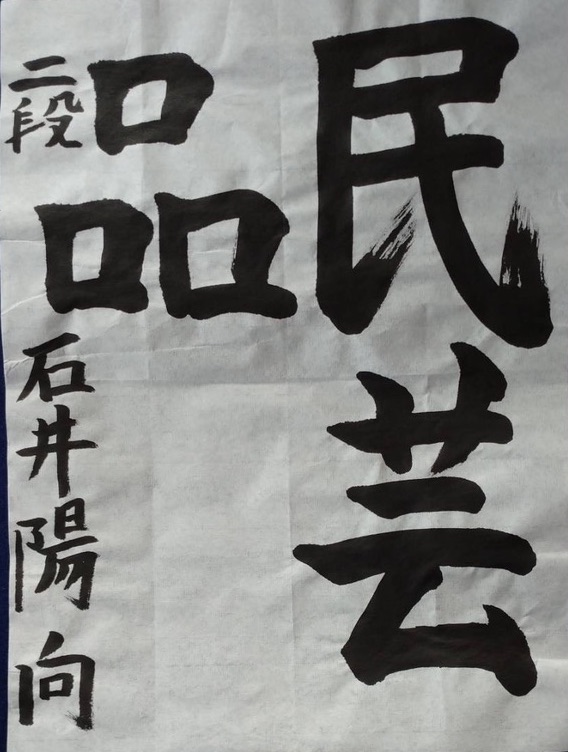 民芸
品
二段
石井陽向